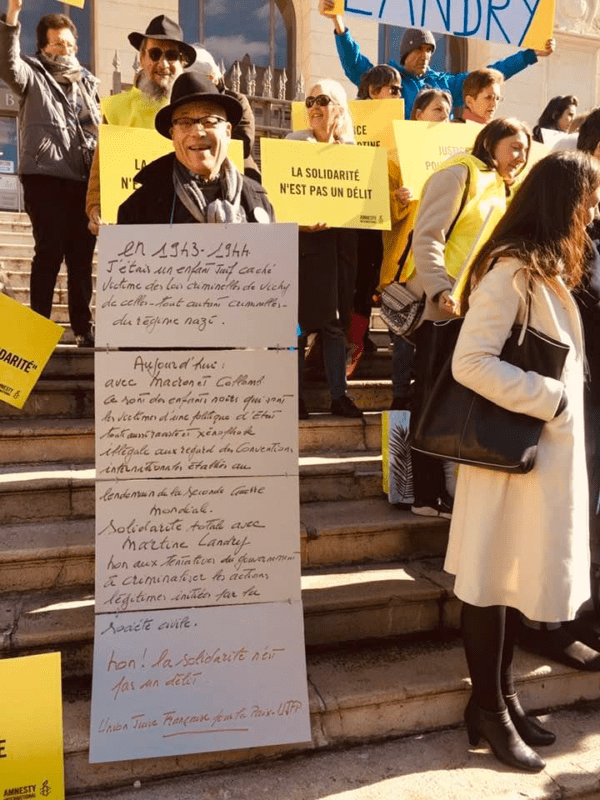 LANDRY
LA
N'E
LA SOLIDARITÉ
N'EST PAS UN DÉLIT
AMNESTY
JUSTICE
POU
DARITÉ"
En 1943-1944
J'étais un enfant Juif caché
victime des lois criminelles de Vichy
de celles-tout autant criminelles-
du régime nazi.
Aujourd'hui :
avec Macron et Collomb
ce sont des enfants noirs qui sont
les victimes d'une politique d'État
tout aussi raciste et xénophobe
illégale au regard des Conventions
internationales établies au
lendemain de la seconde Guerre
Mondiale.
Solidarité totale avec
Martine Landry
non aux tentatives du gouvernement
à criminaliser les actions
légitimes initiées par la
société civile.
Non! la solidarité n'est
pas un délit
Union Juive Française pour la Paix-UJFP
AMNESTY